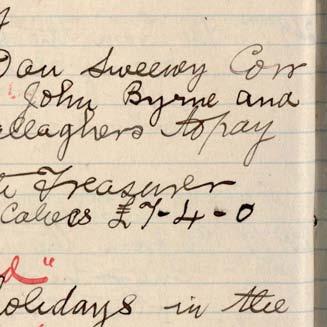 Dan Sweeney Corr
John Byrne and
allaghers to pay
Treasurer
£7-4-0
d"
olidays in the